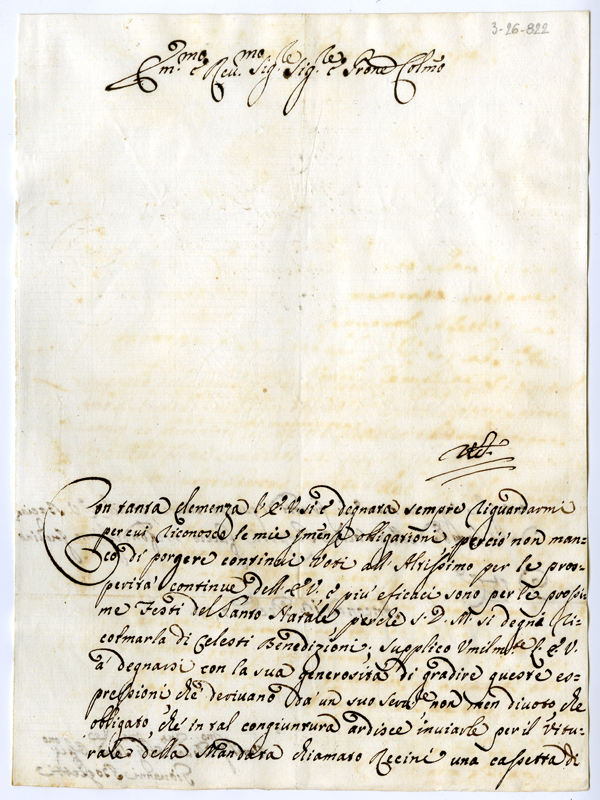 3-26-822
Em.mo e Reu.mo Sig.re Sig.re e Prone Colmo
Con tanta clemenza l'E.V. si è degnata sempre riguardarmi
per cui riconosco le mie immense obligazioni perciò non man=
co di porgere continui Voti all'Altissimo per le pros=
perità continue dell'E.V. e più efficaci sono per le prossi=
me Festi del Santo Natale perche S.D.M. si degni Ri=
colmarla di Celesti Benedizioni; supplico Umilm.te l'E.V.
à degnarsi con la sua generosità di gradire queste es=
pressioni che derivano da un suo Seru.re non men divoto, che
obligato, che in tal congiuntura ardisce inviarle per il Vitu=
rale della Mandata chiamato Recini una cassetta di